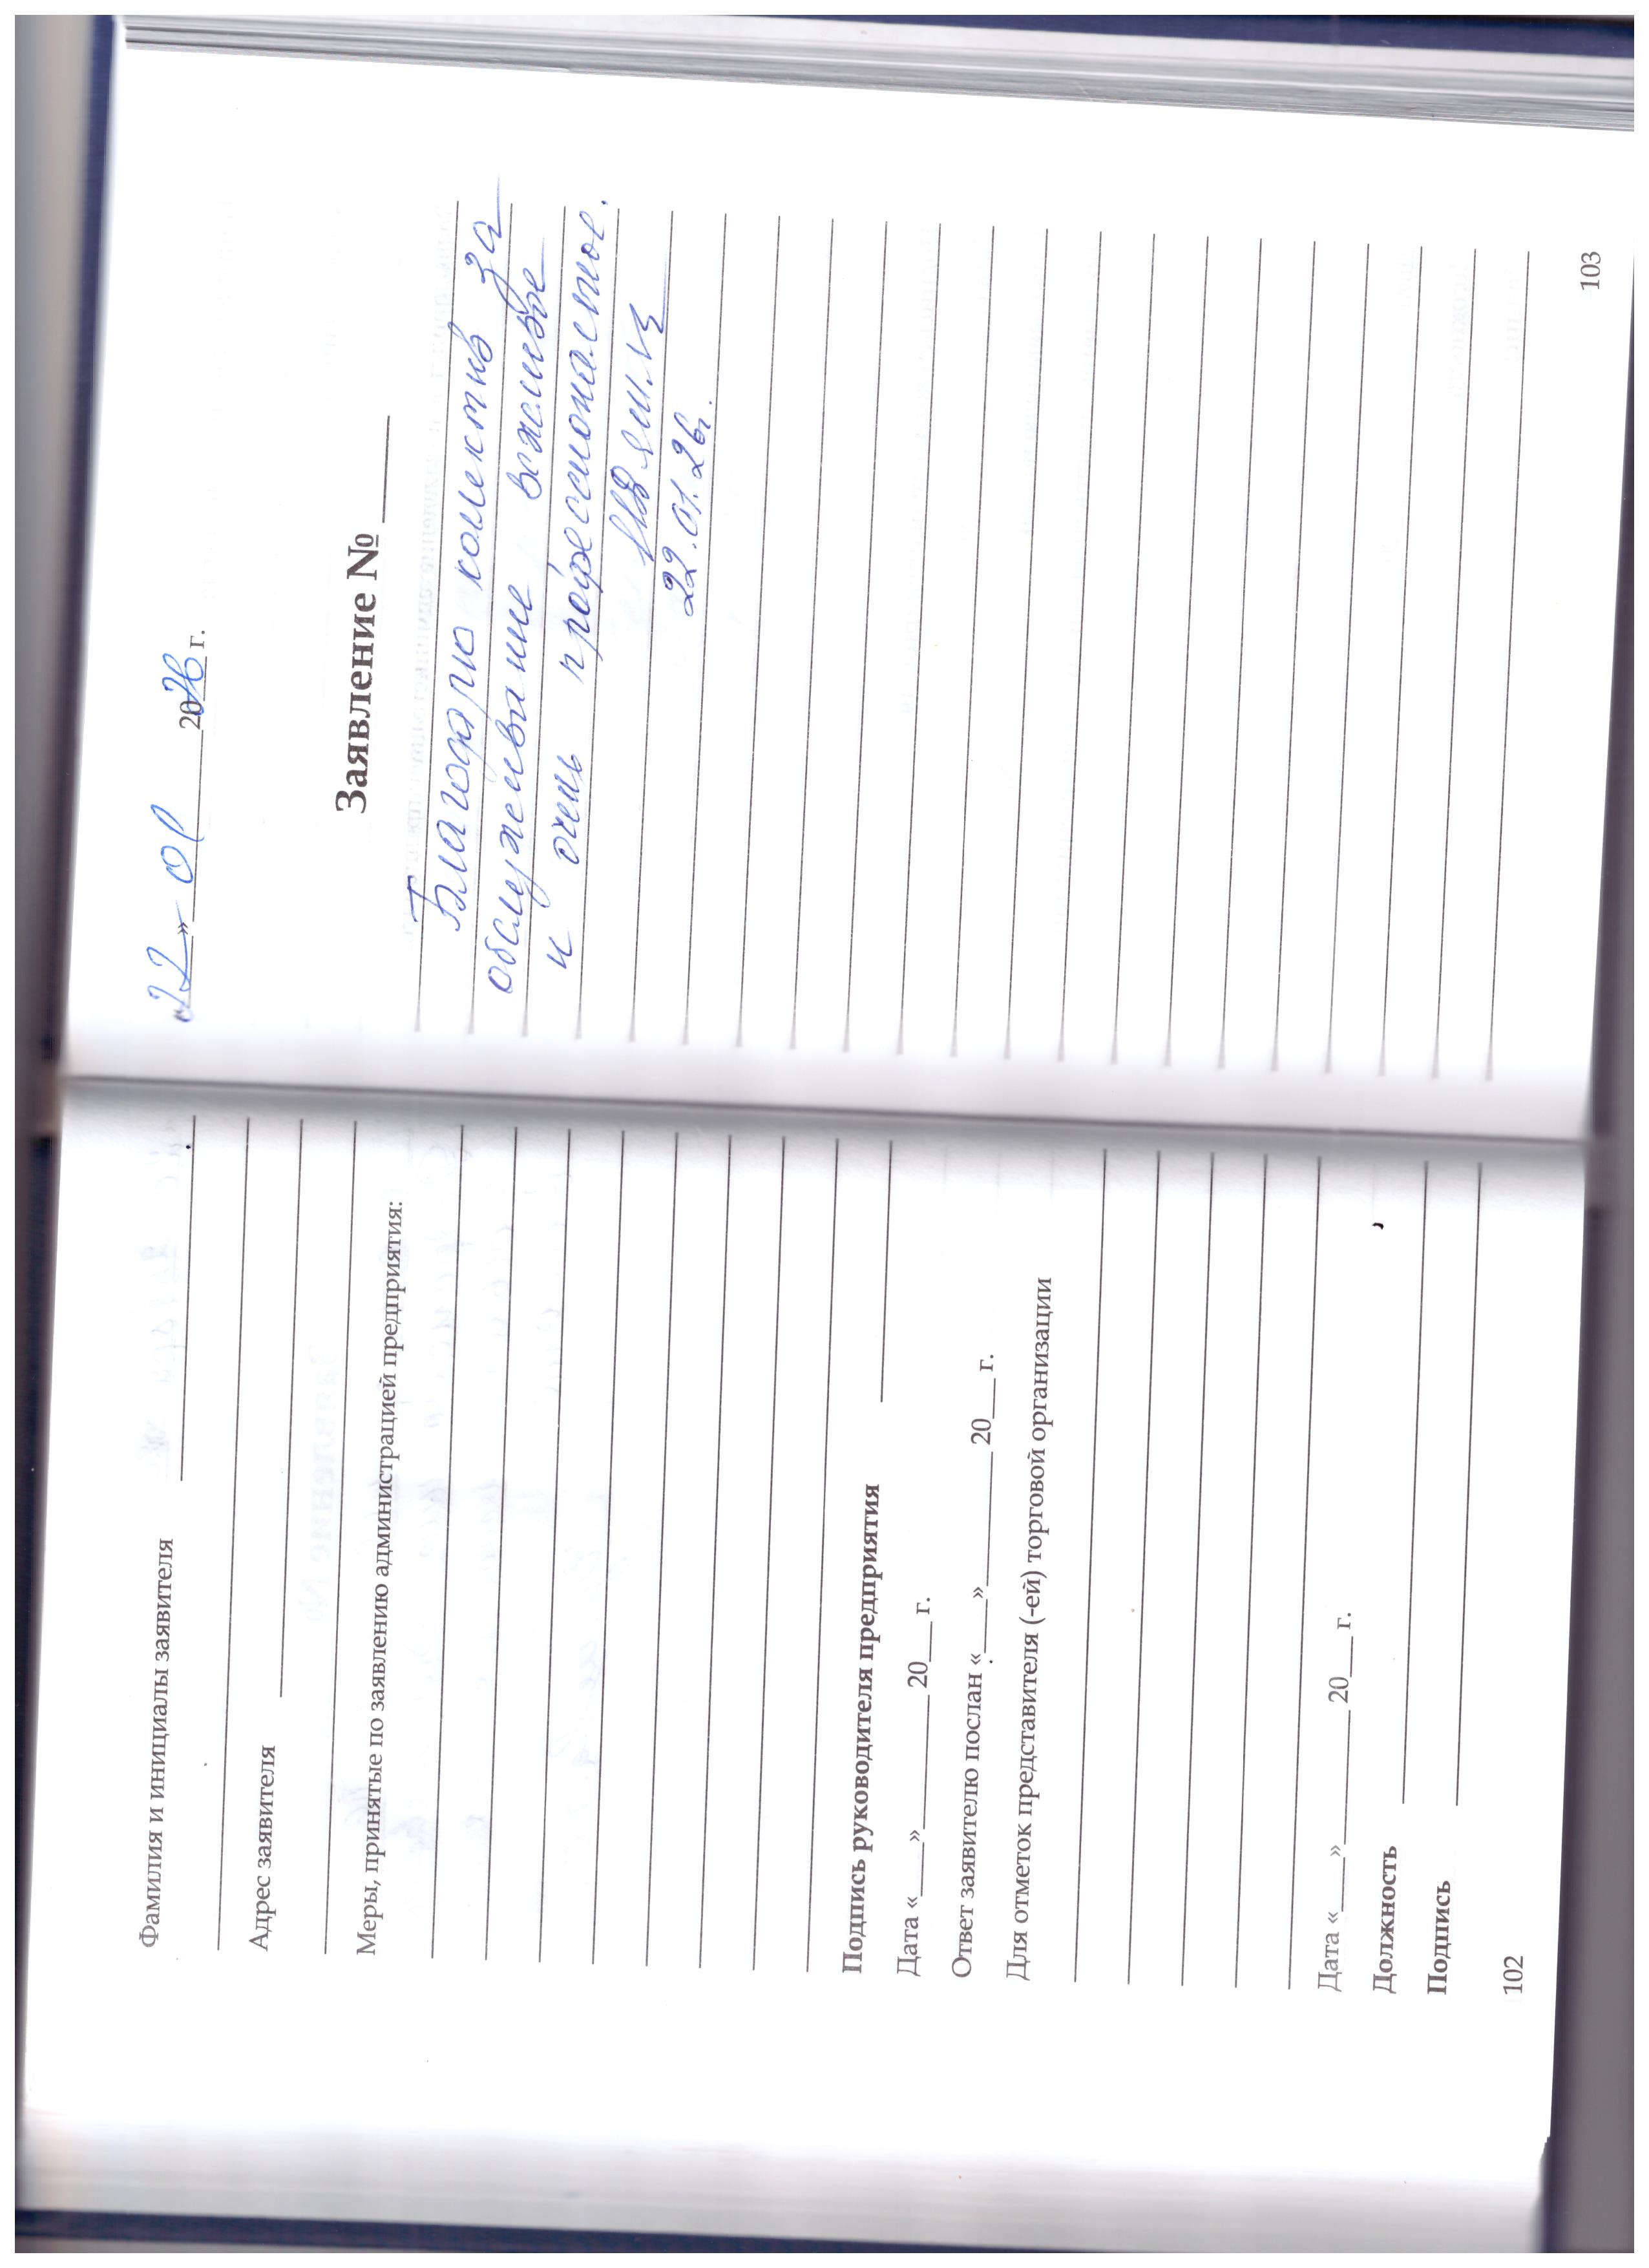 Фамилия и инициалы заявителя
Адрес заявителя
Меры, принятые по заявлению администрацией предприятия:
Подпись руководителя предприятия
Дата «___»________ 20__ г.
Ответ заявителю послан «___»________ 20__ г.
Для отметок представителя (-ей) торговой организации
Дата «___»________ 20__ г.
Должность
Подпись
102
«22» 01 2026 г.
Заявление №
Благодарю колектив за
обслуживание вежливое
и очень профессиональное.
22.01.26г.
103